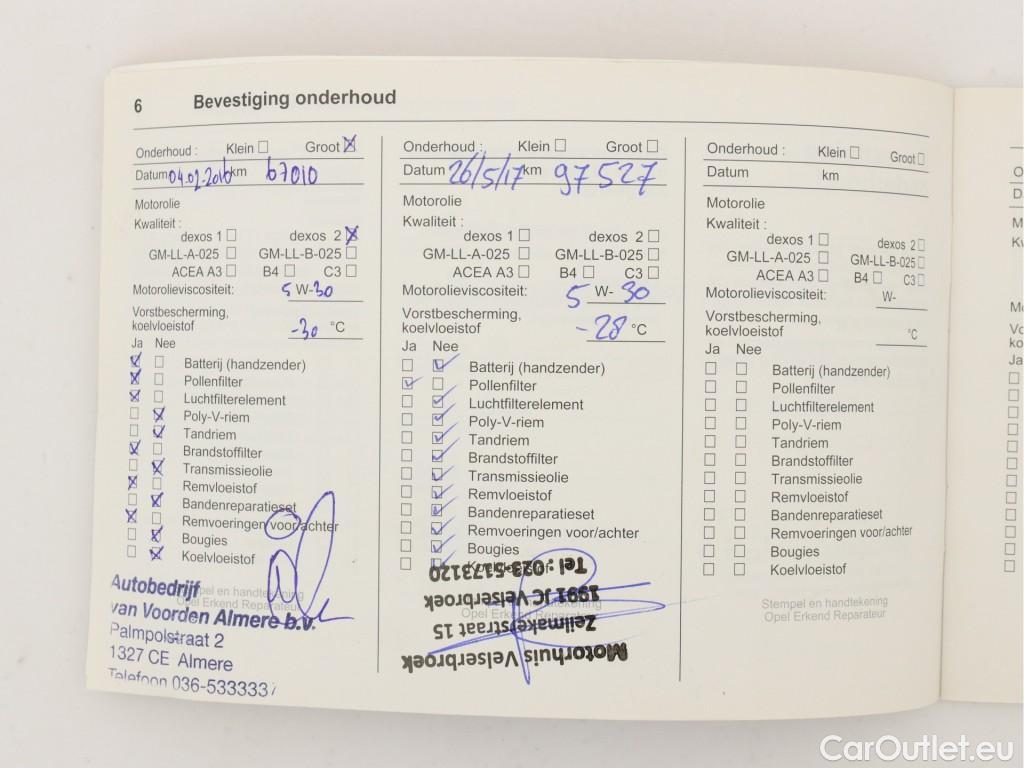 6 Bevestiging onderhoud
Onderhoud : Klein Groot
Datum 04.02.2016 km 67010
Motorolie
Kwaliteit :
dexos 1 dexos 2
GM-LL-A-025 GM-LL-B-025
ACEA A3 B4 C3
Motorolieviscositeit: 5 W-30
Vorstbescherming,
koelvloeistof -30 °C
Ja Nee
Batterij (handzender)
Pollenfilter
Luchtfilterelement
Poly-V-riem
Tandriem
Brandstoffilter
Transmissieolie
Remvloeistof
Bandenreparatieset
Remvoeringen voor/achter
Bougies
Koelvloeistof
Stempel en handtekening
Opel Erkend Reparateur
Autobedrijf
van Voorden Almere b.v.
Palmpolstraat 2
1327 CE Almere
Telefoon 036-5333337
Onderhoud : Klein Groot
Datum 26/5/17 km 97527
Motorolie
Kwaliteit :
dexos 1 dexos 2
GM-LL-A-025 GM-LL-B-025
ACEA A3 B4 C3
Motorolieviscositeit: 5 W- 30
Vorstbescherming,
koelvloeistof -28 °C
Ja Nee
Batterij (handzender)
Pollenfilter
Luchtfilterelement
Poly-V-riem
Tandriem
Brandstoffilter
Transmissieolie
Remvloeistof
Bandenreparatieset
Remvoeringen voor/achter
Bougies
Koelvloeistof
Opel Erkend Reparateur
Motorhuis Velserbroek
Zeilmakerstraat 15
1991 JC Velserbroek
Tel : 023-5173120
Onderhoud : Klein Groot
Datum km
Motorolie
Kwaliteit :
dexos 1 dexos 2
GM-LL-A-025 GM-LL-B-025
ACEA A3 B4 C3
Motorolieviscositeit: W-
Vorstbescherming,
koelvloeistof °C
Ja Nee
Batterij (handzender)
Pollenfilter
Luchtfilterelement
Poly-V-riem
Tandriem
Brandstoffilter
Transmissieolie
Remvloeistof
Bandenreparatieset
Remvoeringen voor/achter
Bougies
Koelvloeistof
Stempel en handtekening
Opel Erkend Reparateur
CarOutlet.eu